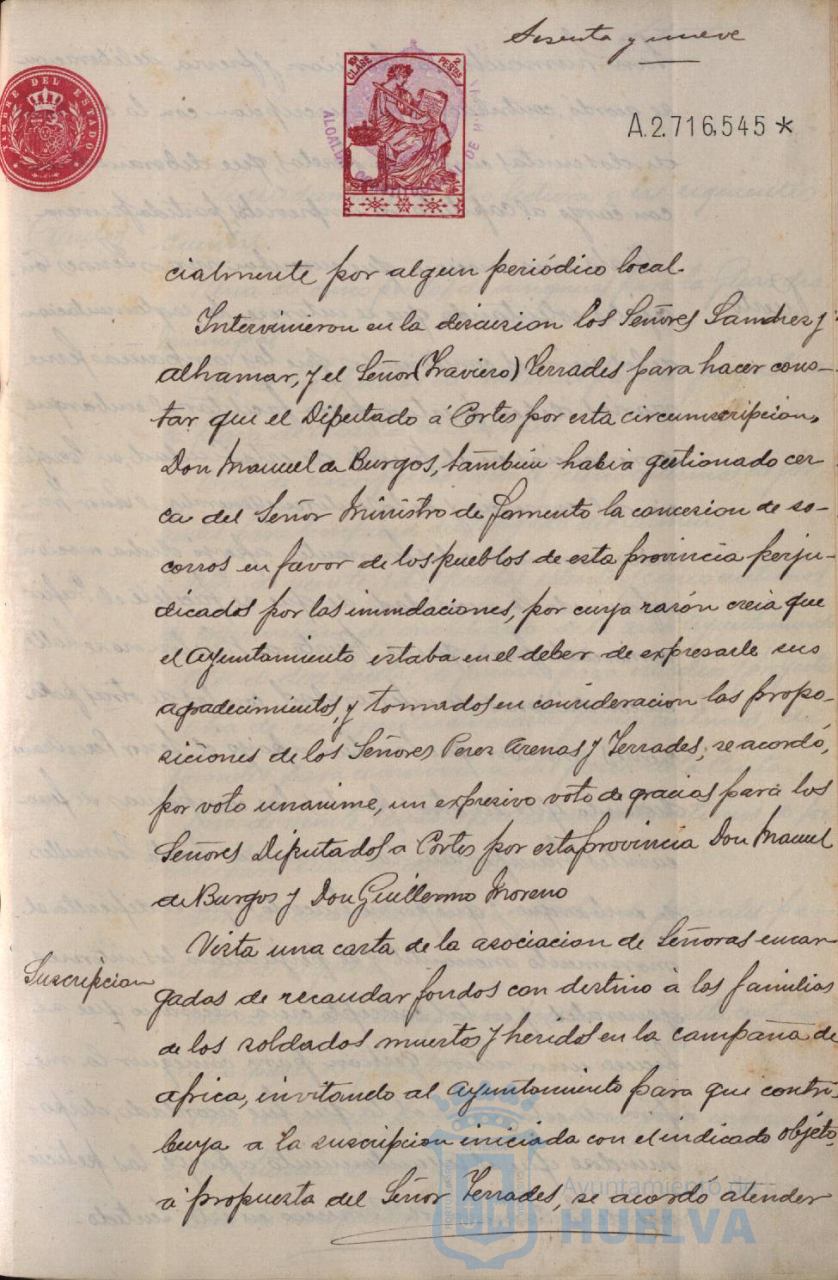 Sesenta y nueve
TIMBRE DEL ESTADO
10ª CLASE 2 PESETAS
ALCALDIA
A.2.716,545 *
cialmente por algun periódico local.
Intervinieron en la discusion los Señores Sanchez y
alhamar, y el Señor (Traviero) Terrades para hacer cons-
tar que el Diputado á Cortes por esta circunscripcion,
Don Manuel de Burgos, tambien habia gestionado cer
ca del Señor Ministro de Fomento la concesion de so-
corros en favor de los pueblos de esta provincia perju-
dicados por las inundaciones, por cuya razón creia que
el Ayuntamiento estaba en el deber de expresarle sus
agradecimientos, y tomados en consideracion las propo-
siciones de los Señores Perez Arenas y Terrades, se acordó,
por voto unanime, un expresivo voto de gracias para los
Señores Diputados a Cortes por esta provincia Don Manuel
de Burgos y Don Guillermo Moreno
Suscripcion
Vista una carta de la asociacion de Señoras encar
gadas de recaudar fondos con destino á las familias
de los soldados muertos y heridos en la campaña de
africa, invitando al Ayuntamiento para que contri
buya a la suscripcion iniciada con el indicado objeto,
á propuesta del Señor Terrades, se acordó atender
Ayuntamiento de
HUELVA